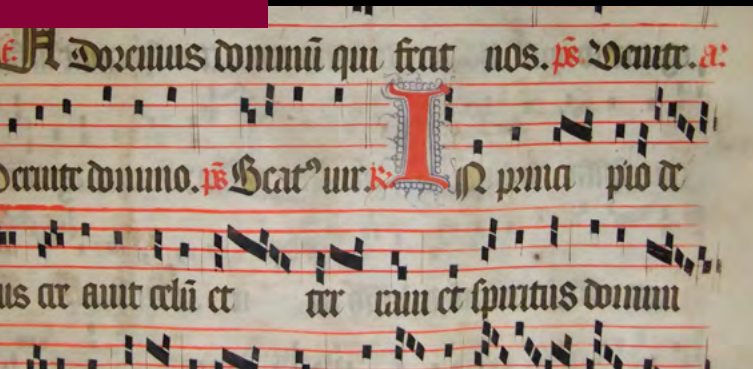 Adoremus dominū qui fecit nos. p̄s Venite. a:
Seruite domino. p̄s Beat⁹ uir. R: IN princi pio de
us cre auit celū et ter ram et spiritus domini